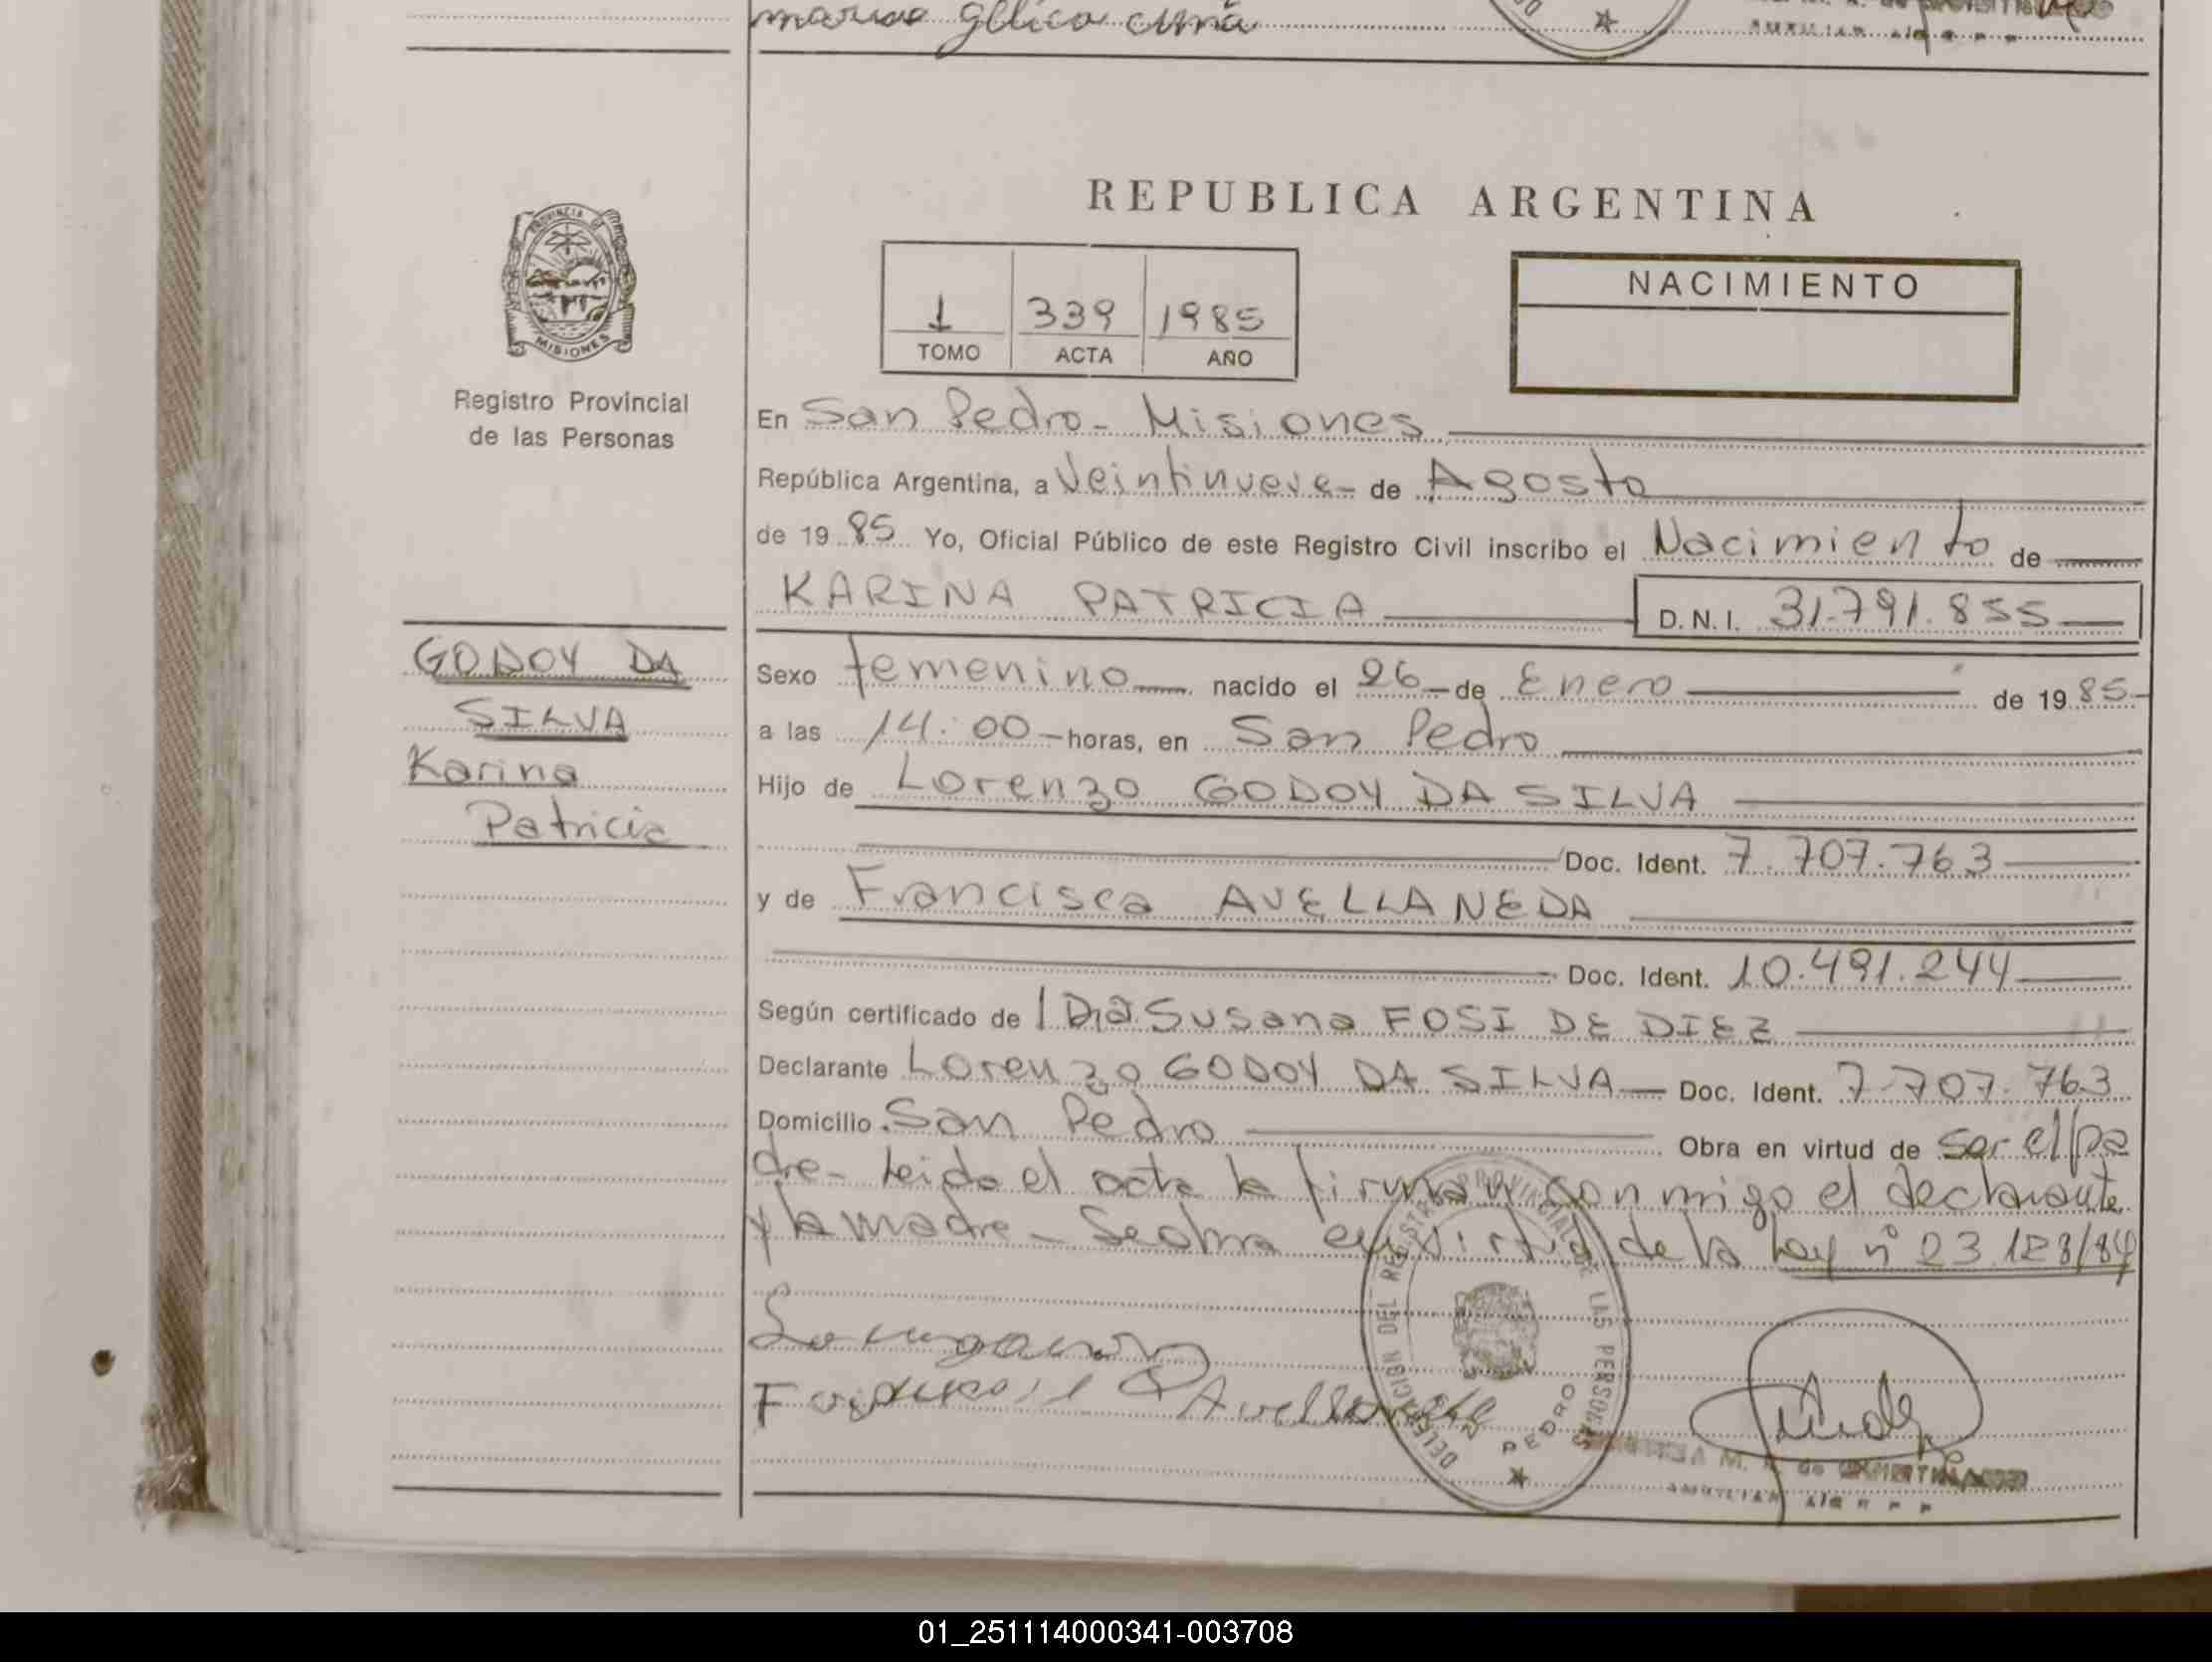 REPUBLICA ARGENTINA
PROVINCIA DE
MISIONES
Registro Provincial
de las Personas
1 339 1985
TOMO ACTA AÑO
NACIMIENTO
En San Pedro - Misiones
República Argentina, a Veintinueve - de Agosto
de 19 85 Yo, Oficial Público de este Registro Civil inscribo el Nacimiento de
KARINA PATRICIA D.N.I. 31.791.855
GODOY DA
SILVA
Karina
Patricia
Sexo femenino nacido el 26 - de Enero de 19 85
a las 14:00 - horas, en San Pedro
Hijo de Lorenzo GODOY DA SILVA
Doc. Ident. 7.707.763
y de Francisca AVELLANEDA
Doc. Ident. 10.491.244
Según certificado de Dra Susana FOSI DE DIEZ
Declarante Lorenzo GODOY DA SILVA - Doc. Ident. 7.707.763
Domicilio San Pedro Obra en virtud de ser el pa
dre - Leida el acta la firman conmigo el declarante
y la madre - Se obra en virtud de la Ley n° 23.128/84
DELEGACION DEL REGISTRO PROVINCIAL DE LAS PERSONAS
SAN PEDRO
01_251114000341-003708